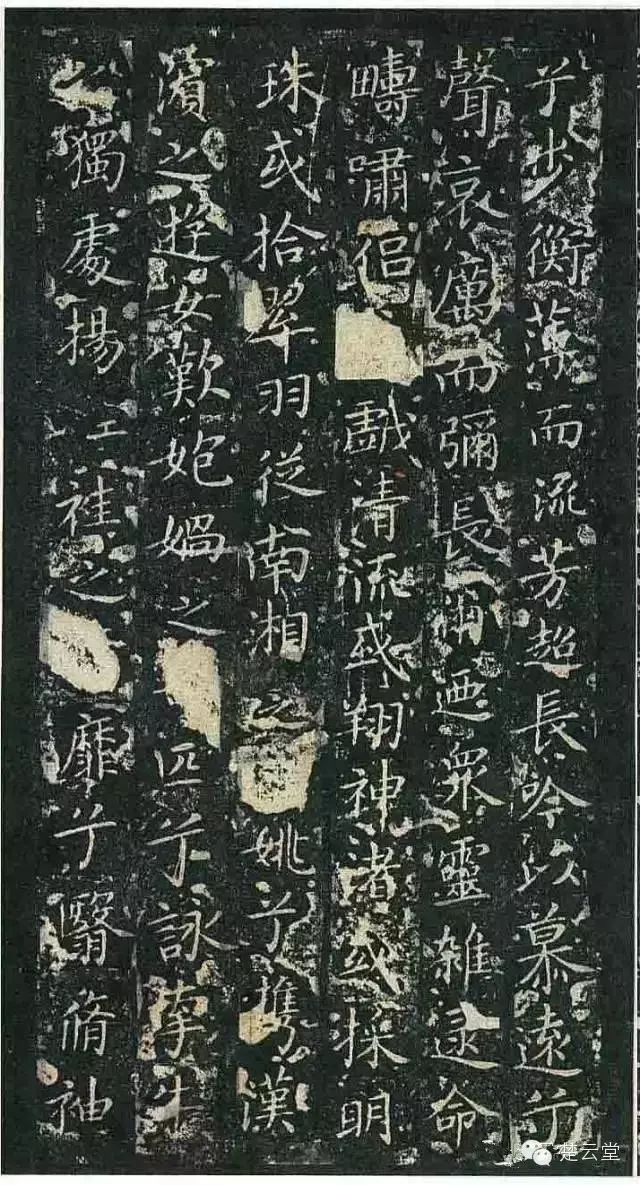 兮步衡薄而流芳超長吟以慕遠兮
聲哀厲而彌長爾迺眾靈雜遝命
疇嘯侶戲清流或翔神渚或採明
珠或拾翠羽從南湘之姚兮攜漢
濱之遊女歎媧之匹兮詠牽牛
之獨處揚袿之靡兮翳脩袖
楚云堂